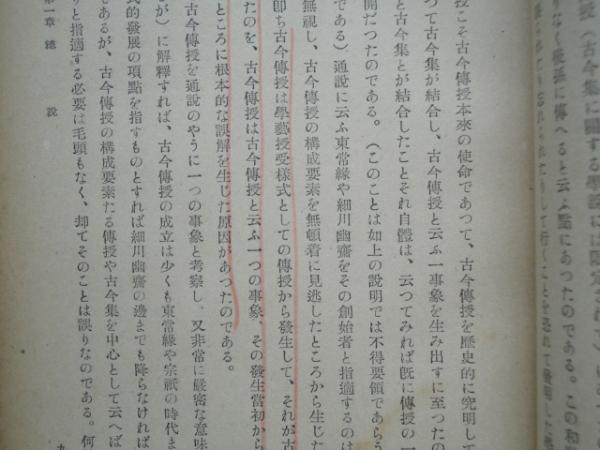 授（古今集に關する學說には限定されて）
りなく後進に傳へると云ふ點にあつたのである。この和
授こそ古今傳授本來の使命であつて、古今傳授を歷史的に究明して
つて古今集が結合し、古今傳授と云ふ一事象を生み出すに至つたの
と古今集とが結合したことそれ自體は、云つてみれば既に傳授の一
開だつたのである。（このことは如上の說明では不得要領であらう
である）通說に云ふ東常緣や細川幽齋をその創始者と指適するのは
無視し、古今傳授の構成要素を無頓着に見逃したところから生じた
即ち古今傳授は學藝授受樣式としての傳授から發生して、それが古
たのを、古今傳授は古今傳授と云ふ一つの事象、その發生當初から
ところに根本的な誤解を生じた原因があつたのである。
古今傳授を通說のやうに一つの事象と考察し、又非常に嚴密な意味
が）に解釋すれば、古今傳授の成立は少くも東常緣や宗祇の時代ま
式的發展の項點を指すものとすれば細川幽齋の邊までも降らなければ
であるが、古今傳授の構成要素たる傳授や古今集を中心として云へば
りと指適する必要は毛頭もなく、却てそのことは誤りなのである。何
第一章 總說
九